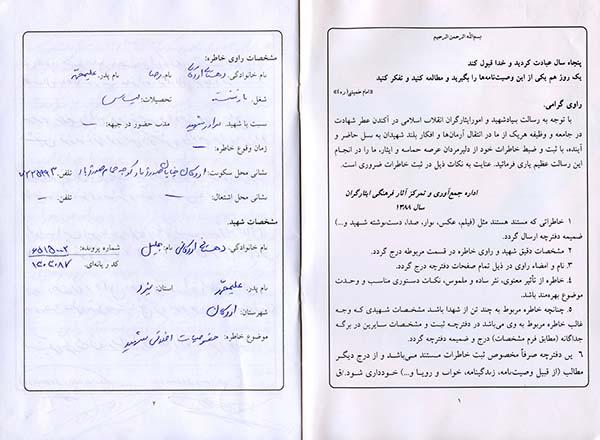 بسم‌الله الرحمن الرحیم
پنجاه سال عبادت کردید و خدا قبول کند
یک روز هم یکی از این وصیت‌نامه‌ها را بگیرید و مطالعه کنید و تفکر کنید
«امام خمینی(ره)»
راوی گرامی.
با توجه به رسالت بنیادشهید و امورایثارگران انقلاب اسلامی در آکندن عطر شهادت
در جامعه و وظیفه هریک از ما در انتقال آرمان‌ها و افکار بلند شهیدان به نسل حاضر و
آینده، با ثبت و ضبط خاطرات خود از دلیرمردان عرصه حماسه و ایثار، ما را در انجام
این رسالت عظیم یاری فرمائید. عنایت به نکات ذیل در ثبت خاطرات ضروری است.
اداره جمع‌آوری و تمرکز آثار فرهنگی ایثارگران
سال ۱۳۸۸
۱ خاطراتی که مستند هستند مثل (فیلم، عکس، نوار، صدا، دست‌نوشته شهید و...)
ضمیمه دفترچه ارسال گردد.
۲ مشخصات دقیق شهید و راوی خاطره در قسمت مربوطه درج گردد.
۳. نام و امضاء راوی در ذیل تمام صفحات دفترچه درج گردد.
۴. خاطره از تأثیر معنوی، نثر ساده و ملموس، نکات دستوری مناسب و وحدت
موضوع بهره‌مند باشد.
۵. چنانچه خاطره مربوط به چند تن از شهدا باشد مشخصات شهیدی که وجه
غالب خاطره مربوط به وی می‌باشد در دفترچه ثبت و مشخصات سایرین در برگه
جداگانه (مطابق فرم مشخصات) درج و ضمیمه دفترچه گردد.
۶ این دفترچه صرفاً مخصوص ثبت خاطرات مستند می‌باشد و از درج دیگر
مطالب (از قبیل وصیت‌نامه، زندگینامه، خواب و رویا و...) خودداری شود./ق
۱
مشخصات راوی خاطره:
نام خانوادگی: دهستانی اردکانی نام: رضا نام پدر: علیمحمد
شغل: بازنشسته تحصیلات: لیسانس
نسبت با شهید: برادر شهید مدت حضور در جبهه: –
زمان وقوع خاطره: –
نشانی محل سکونت: اردکان خیابان کوچه حمام تلفن:
نشانی محل اشتغال: – تلفن: –
مشخصات شهید:
نام خانوادگی: دهستانی اردکانی نام: جلیل شماره پرونده: ۶۵۱۵۰۰۲
کد رایانه‌ای: ۱۲۰۲۰۸۷
نام پدر: علیمحمد استان: یزد
شهرستان: اردکان
موضوع خاطره: خصوصیات اخلاقی شهید
۲